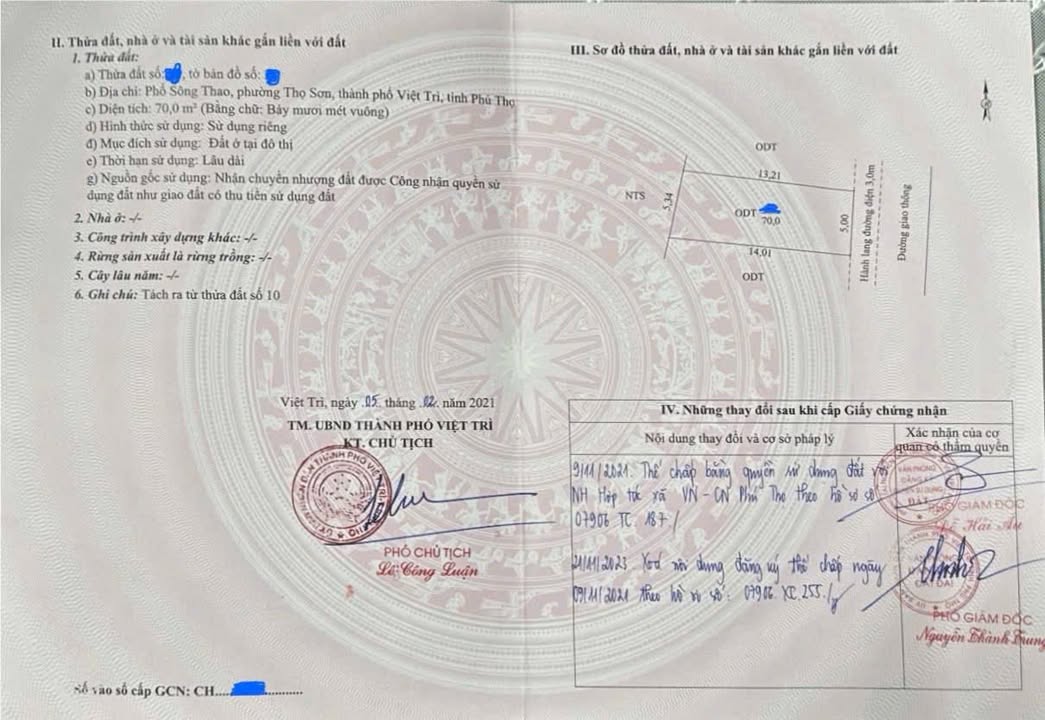 II. Thửa đất, nhà ở và tài sản khác gắn liền với đất
1. Thửa đất:
a) Thửa đất số: , tờ bản đồ số:
b) Địa chỉ: Phố Sông Thao, phường Thọ Sơn, thành phố Việt Trì, tỉnh Phú Thọ
c) Diện tích: 70,0 m² (Bằng chữ: Bảy mươi mét vuông)
d) Hình thức sử dụng: Sử dụng riêng
đ) Mục đích sử dụng: Đất ở tại đô thị
e) Thời hạn sử dụng: Lâu dài
g) Nguồn gốc sử dụng: Nhận chuyển nhượng đất được Công nhận quyền sử
dụng đất như giao đất có thu tiền sử dụng đất
2. Nhà ở: -/-
3. Công trình xây dựng khác: -/-
4. Rừng sản xuất là rừng trồng: -/-
5. Cây lâu năm: -/-
6. Ghi chú: Tách ra từ thửa đất số 10
Việt Trì, ngày .05. tháng .02. năm 2021
TM. UBND THÀNH PHỐ VIỆT TRÌ
KT. CHỦ TỊCH
PHÓ CHỦ TỊCH
Lê Công Luận
Số vào sổ cấp GCN: CH....
III. Sơ đồ thửa đất, nhà ở và tài sản khác gắn liền với đất
ODT
13,21
NTS
5,34
ODT
70,0
5,00
14,01
ODT
Hành lang đường điện 3,0m
Đường giao thông
IV. Những thay đổi sau khi cấp Giấy chứng nhận
Nội dung thay đổi và cơ sở pháp lý
Xác nhận của cơ
quan có thẩm quyền
9/11/2021. Thế chấp bằng quyền sử dụng đất với
NH Hợp tác xã VN - CN Phú Thọ theo hồ sơ số
07906. TC. 187./
PHÓ GIÁM ĐỐC
Lê Hải Âu
21/11/2023 Xoá nội dung đăng ký thế chấp ngày
09/11/2021 theo hồ sơ số: 07906. XC. 255./
PHÓ GIÁM ĐỐC
Nguyễn Thành Trung